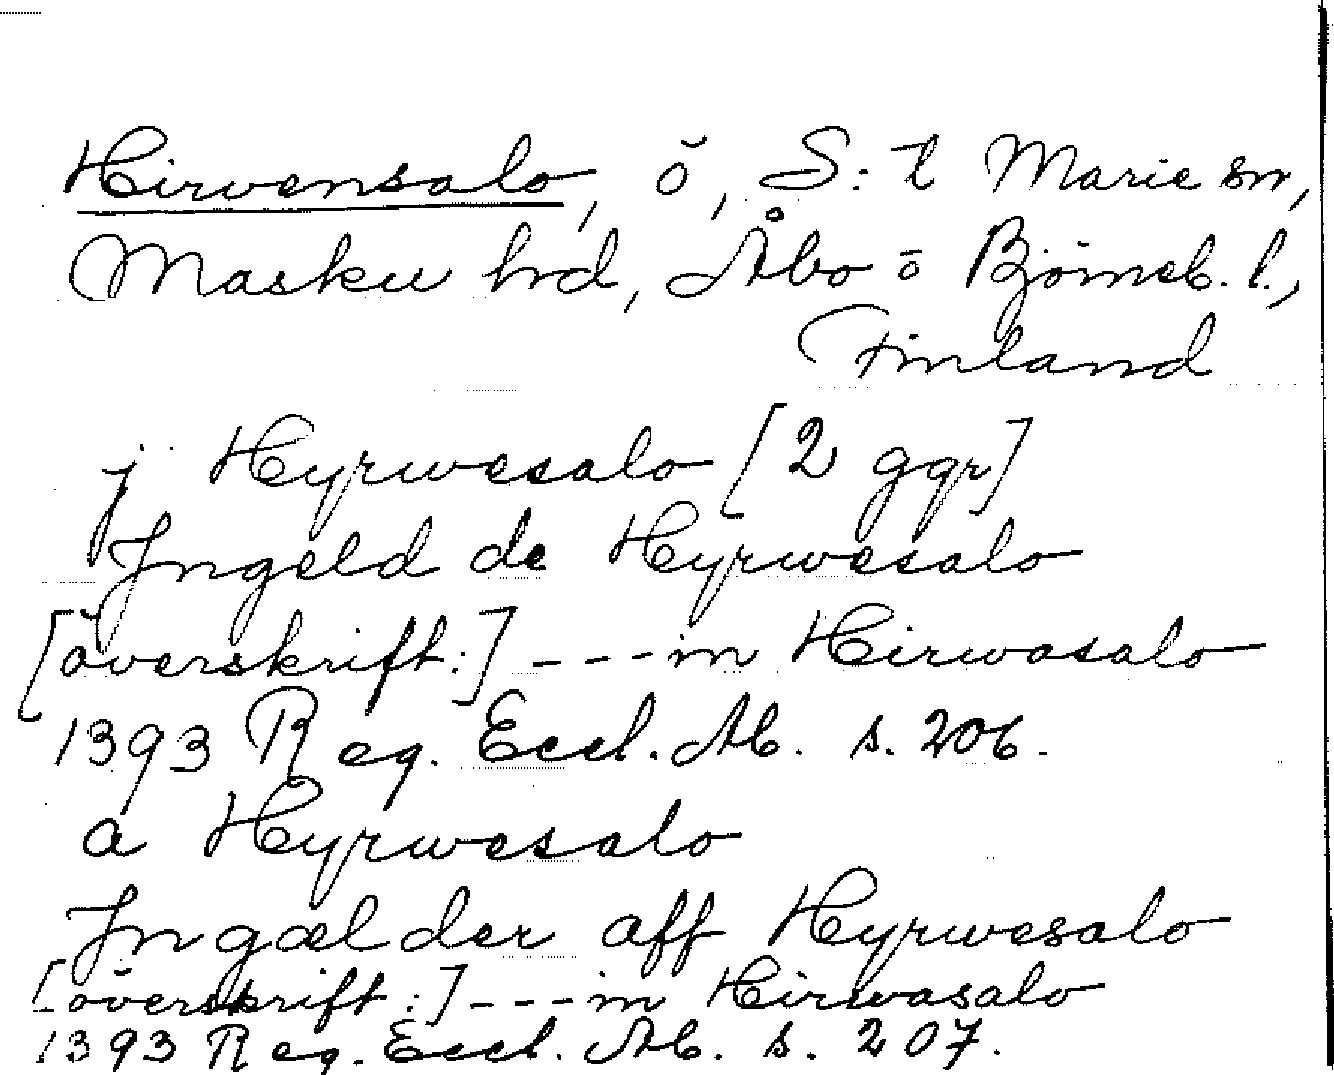 Hirvensalo, ö, S:t Marie sn,
Masku hrd, Åbo o Björneb. l.,
Finland
j Hyrwesalo [2 ggr]
Jngeld de Hyrwesalo
[överskrift:] ---in Hirwasalo
1393 Reg. Eccl. Ab. s. 206.
a Hyrwesalo
Jngælder aff Hyrwesalo
[överskrift:] ---in Hirwasalo
1393 Reg. Eccl. Ab. s. 207.